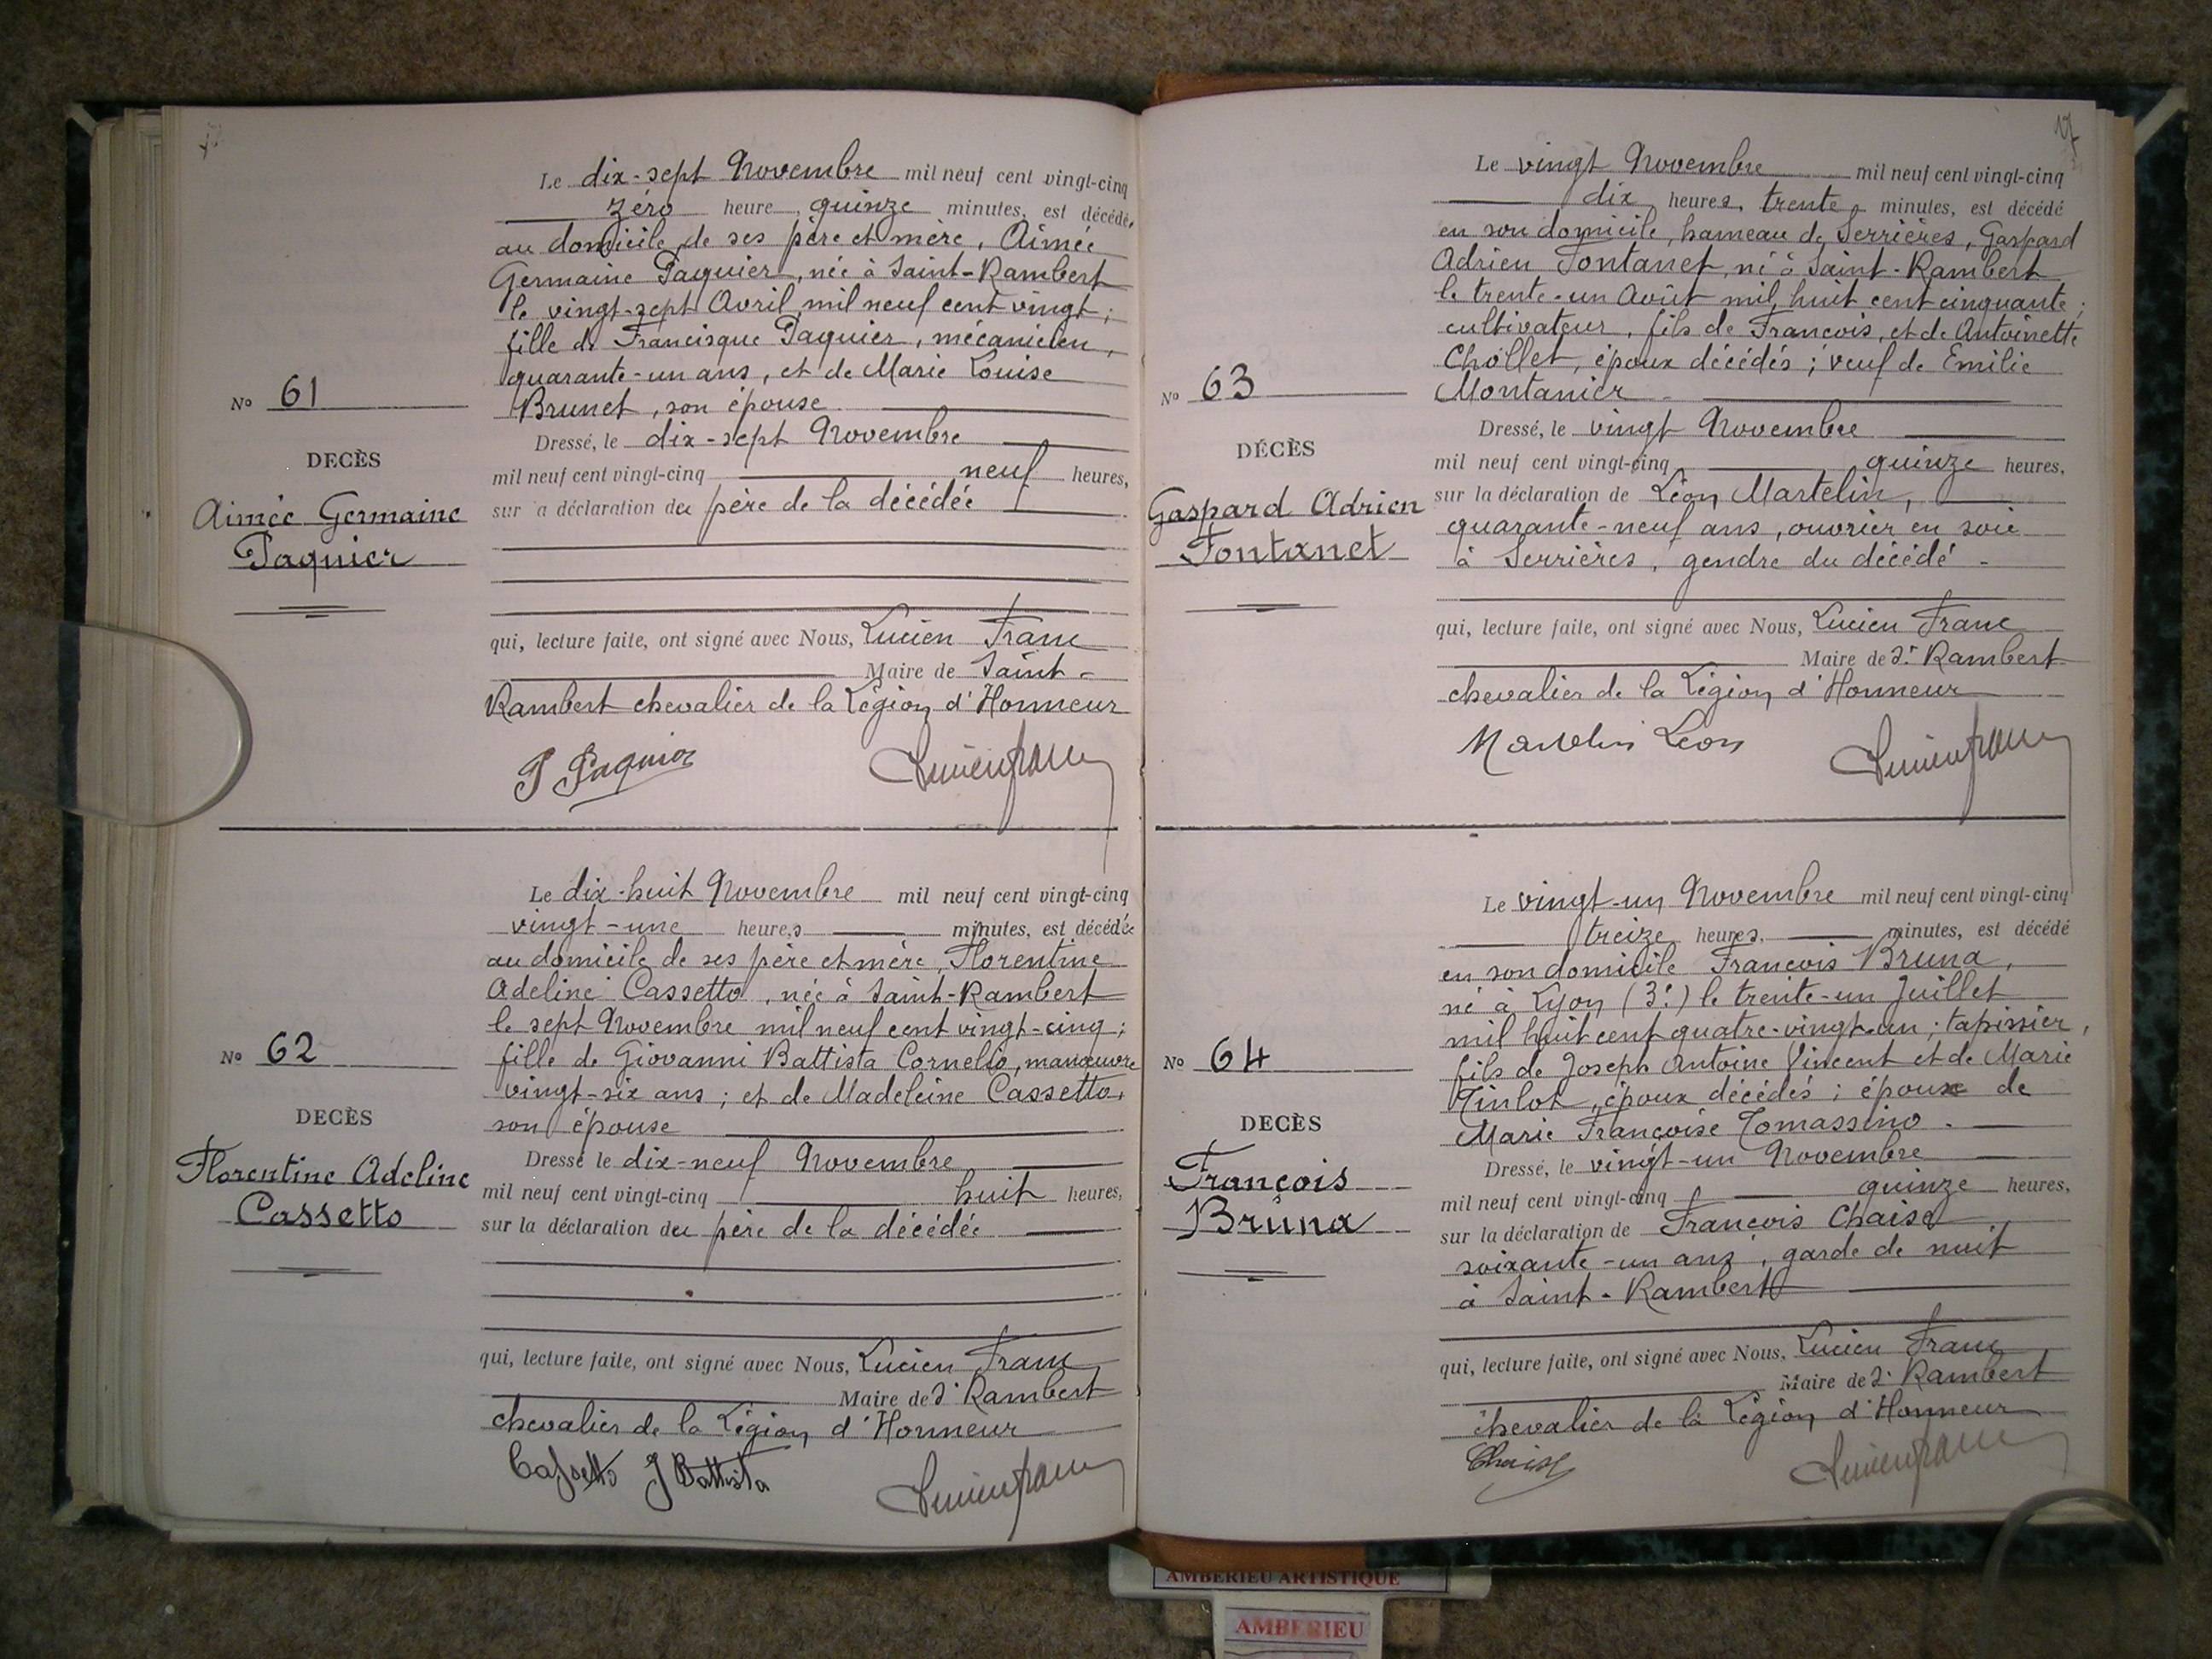 Le dix-sept Novembre mil neuf cent vingt-cinq
zéro heure, quinze minutes, est décédée
au domicile de ses père et mère, Aimée
Germaine Paquier, née à Saint-Rambert
le vingt-sept Avril mil neuf cent vingt;
fille de Francisque Paquier, mécanicien,
quarante-un ans, et de Marie Louise
Brunet, son épouse
No 61
DECÈS
Aimée Germaine
Paquier
Dressé, le dix-sept Novembre
mil neuf cent vingt-cinq neuf heures,
sur a déclaration du père de la décédée
qui, lecture faite, ont signé avec Nous, Lucien Franc
Maire de Saint-
Rambert chevalier de la Légion d'Honneur
P Paquier
Lucien Franc
Le dix-huit Novembre mil neuf cent vingt-cinq
vingt-une heures minutes, est décédée
au domicile de ses père et mère, Florentine
Adeline Cassetto, née à Saint-Rambert
le sept Novembre mil neuf cent vingt-cinq;
fille de Giovanni Battista Cornello, manœuvre
vingt-six ans; et de Madeleine Cassetto,
son épouse
No 62
DECÈS
Florentine Adeline
Cassetto
Dressé le dix-neuf Novembre
mil neuf cent vingt-cinq huit heures,
sur la déclaration du père de la décédée
qui, lecture faite, ont signé avec Nous, Lucien Franc
Maire de St Rambert
chevalier de la Légion d'Honneur
Cassetto J Battista
Lucien Franc
17
Le vingt Novembre mil neuf cent vingt-cinq
dix heures, trente minutes, est décédé
en son domicile, hameau de Serrières, Gaspard
Adrien Fontanet, né à Saint-Rambert
le trente-un Août mil huit cent cinquante;
cultivateur, fils de François, et de Antoinette
Chollet, époux décédés; veuf de Emilie
Montanier
No 63
DÉCÈS
Gaspard Adrien
Fontanet
Dressé, le vingt Novembre
mil neuf cent vingt-cinq quinze heures,
sur la déclaration de Léon Martelin,
quarante-neuf ans, ouvrier en soie
à Serrières, gendre du décédé
qui, lecture faite, ont signé avec Nous, Lucien Franc
Maire de St Rambert
chevalier de la Légion d'Honneur
Martelin Léon
Lucien Franc
Le vingt-un Novembre mil neuf cent vingt-cinq
treize heures, minutes, est décédé
en son domicile François Bruna,
né à Lyon (3e) le trente-un Juillet
mil huit cent quatre-vingt-un; tapissier,
fils de Joseph Antoine Vincent et de Marie
époux décédés; époux de
Marie Françoise Tomassino.
No 64
DECÈS
François
Bruna
Dressé, le vingt-un Novembre
mil neuf cent vingt-cinq quinze heures,
sur la déclaration de François Chaise
soixante-un ans, garde de nuit
à Saint-Rambert
qui, lecture faite, ont signé avec Nous, Lucien Franc
Maire de St Rambert
chevalier de la Légion d'Honneur
Chaise
Lucien Franc
AMBERIEU ARTISTIQUE
AMBERIEU